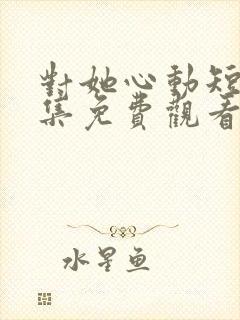 對她心動短
集免費觀看
水星鱼